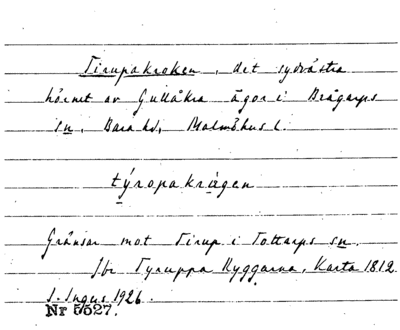 Tirupakroken, det sydvästra
hörnet av Gullåkra ägor i Brågarps
sn, Bara hd, Malmöhus l.
týropakrıegen
Gränsar mot Tirup i Tottarps sn.
Jbr Tyruppa Ryggarna, Karta 1812.
S. Ingers 1926.
Nr 5527.